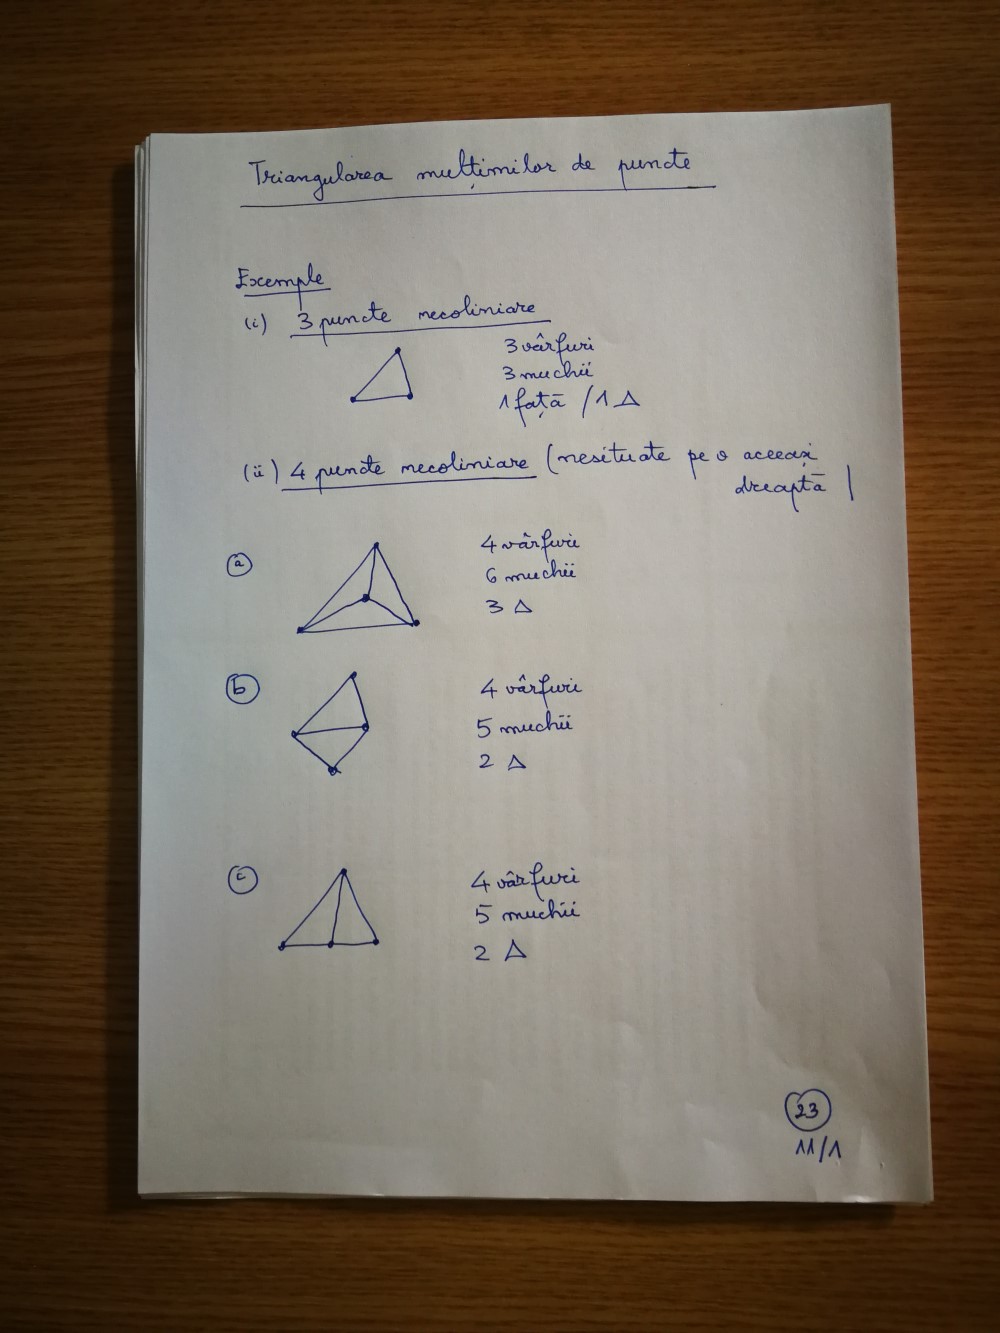 Triangularea mulțimilor de puncte
Exemple
(i) 3 puncte necoliniare
3 vârfuri
3 muchii
1 față / 1 Δ
(ii) 4 puncte necoliniare (nesituate pe o aceeași
dreaptă)
a
4 vârfuri
6 muchii
3 Δ
b
4 vârfuri
5 muchii
2 Δ
c
4 vârfuri
5 muchii
2 Δ
23
11/1